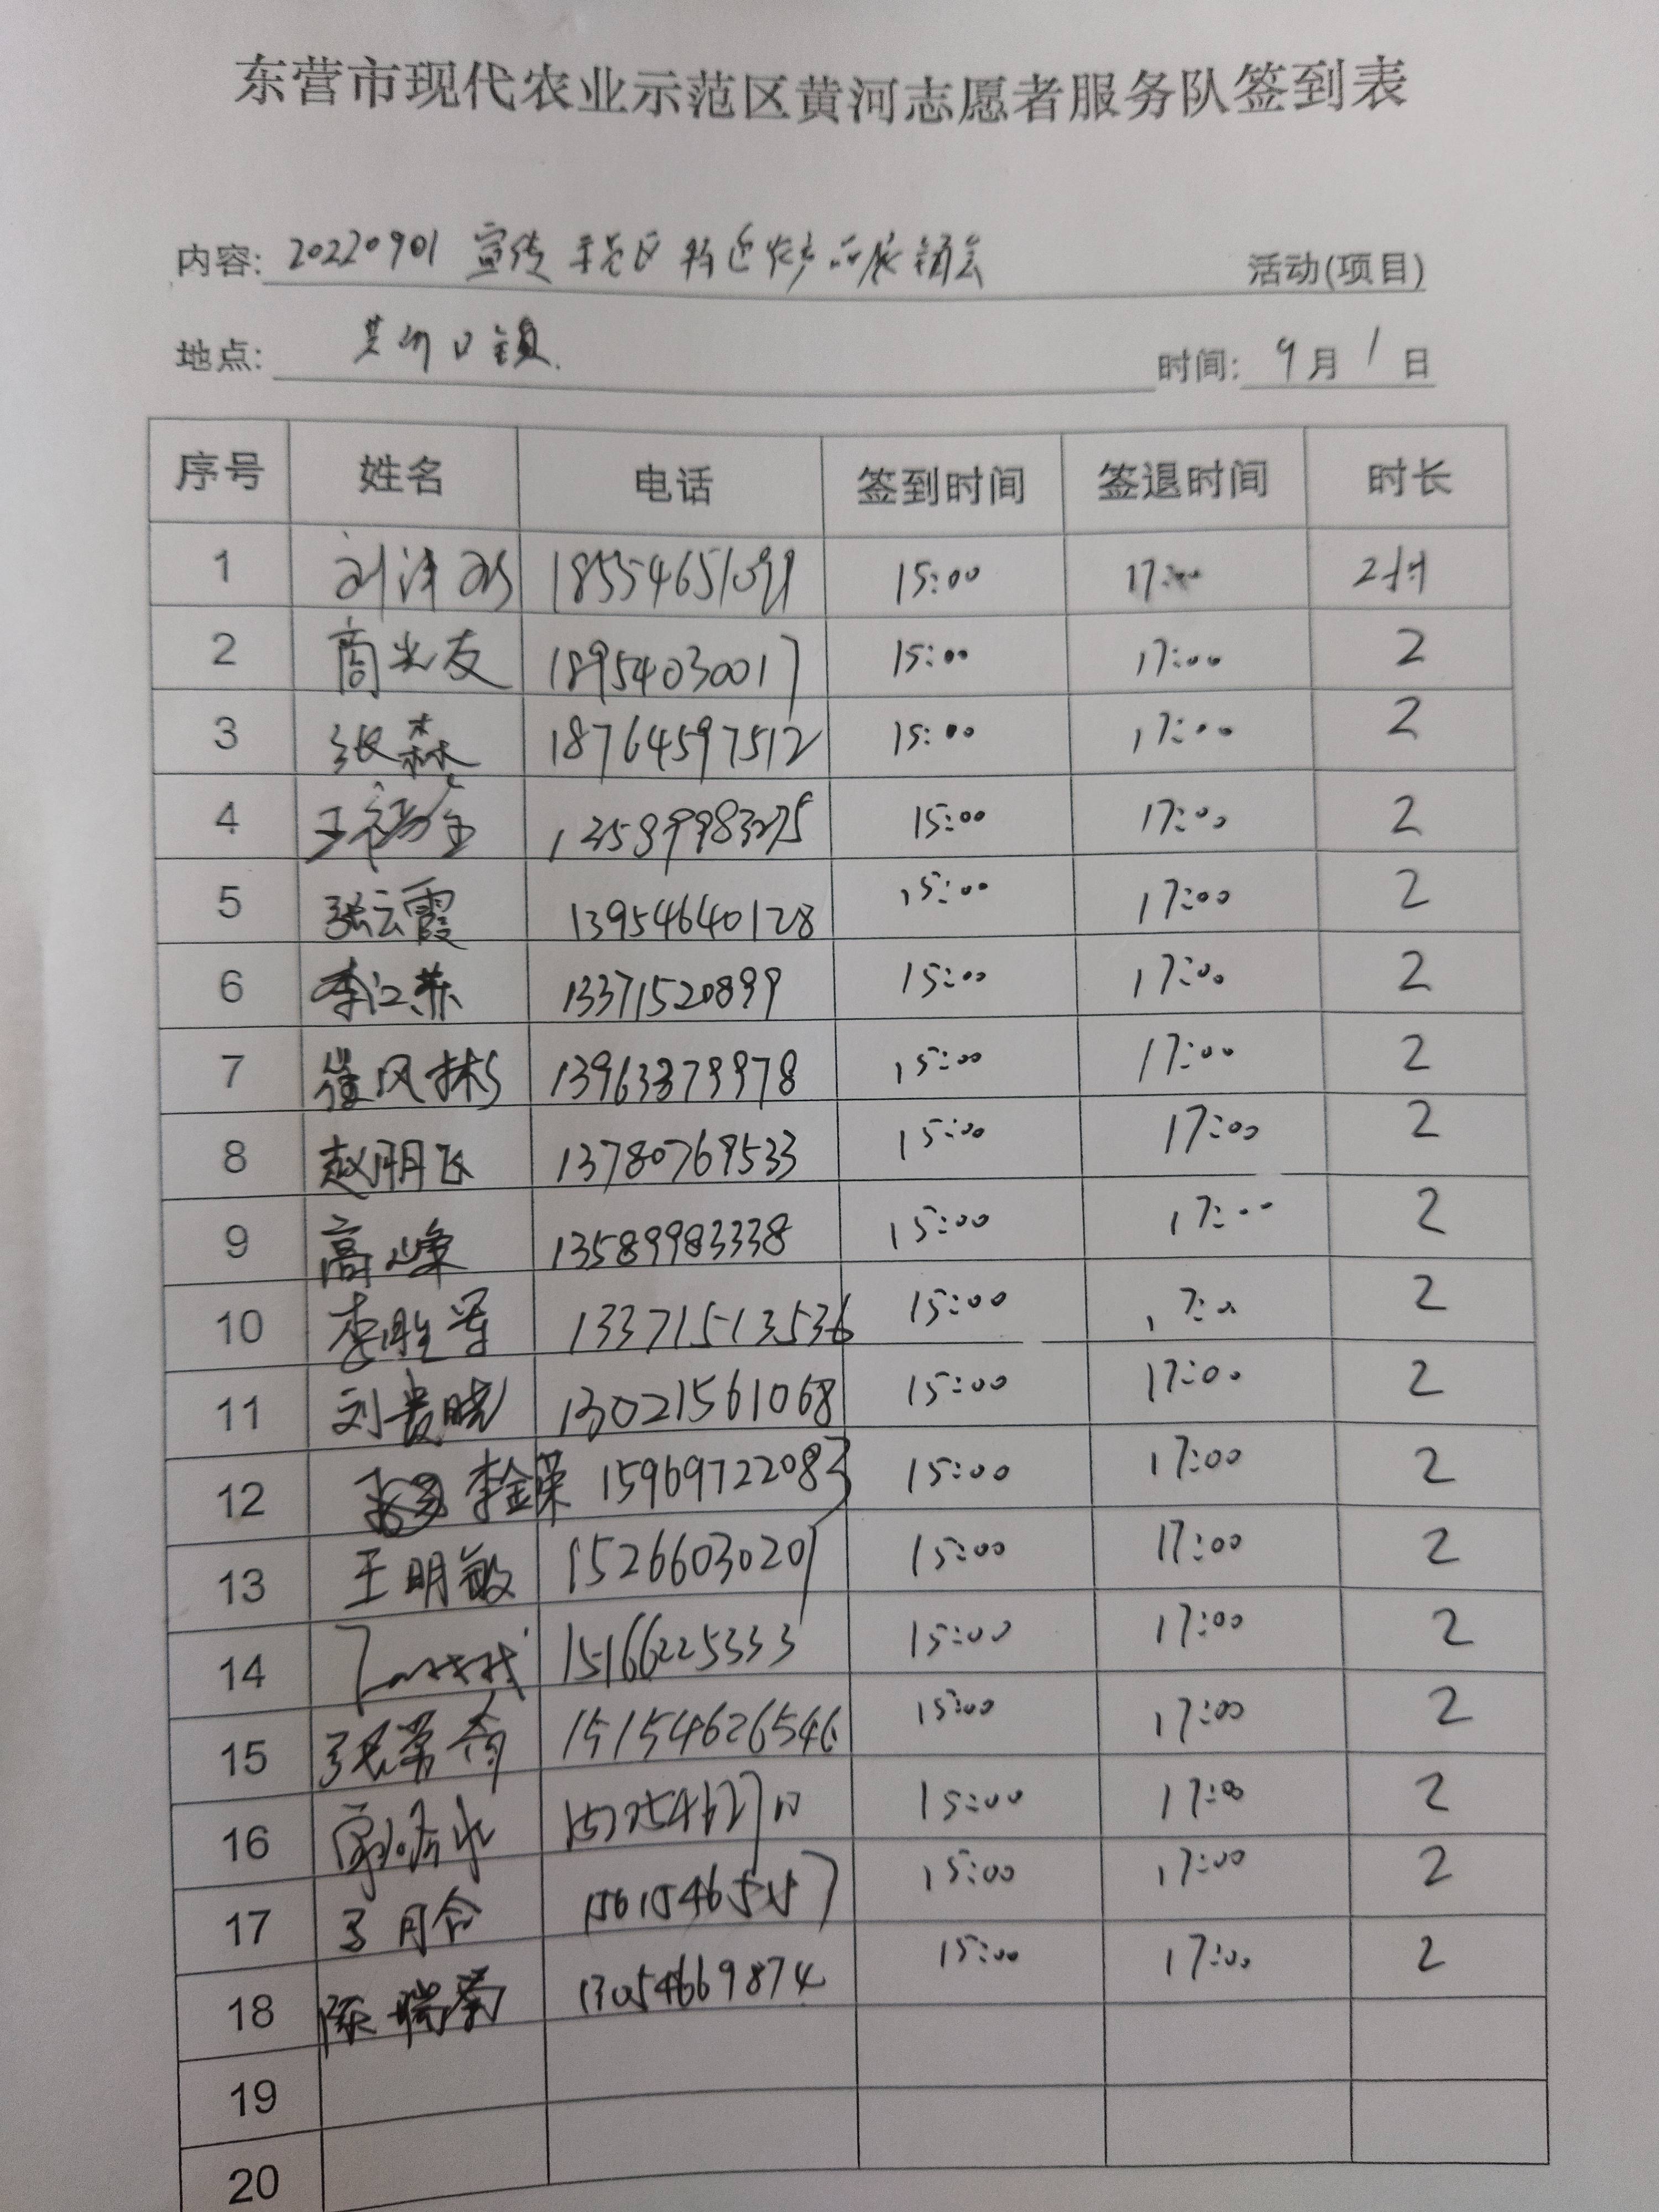 东营市现代农业示范区黄河志愿者服务队签到表
内容: 20220901 宣传示范区 农产品展销会 活动(项目)
地点: 黄河口镇 时间: 9月1日
序号 姓名 电话 签到时间 签退时间 时长
1 18554651091 15:00 17:00 2时
2 商光友 18954030017 15:00 17:00 2
3 张森 18764597512 15:00 17:00 2
4 15:00 17:00 2
5 张云霞 13954640128 15:00 17:00 2
6 李江燕 13371520899 15:00 17:00 2
7 崔风彬 13963379978 15:00 17:00 2
8 赵明飞 13780769533 15:00 17:00 2
9 高峰 13589983338 15:00 17:00 2
10 李胜军 13371513536 15:00 17:00 2
11 刘贵晓 13021561068 15:00 17:00 2
12 李金荣 15969722083 15:00 17:00 2
13 王明敏 15266030207 15:00 17:00 2
14 15166225333 15:00 17:00 2
15 15154626546 15:00 17:00 2
16 15:00 17:00 2
17 15:00 17:00 2
18 陈瑞菊 13054669874 15:00 17:00 2
19
20